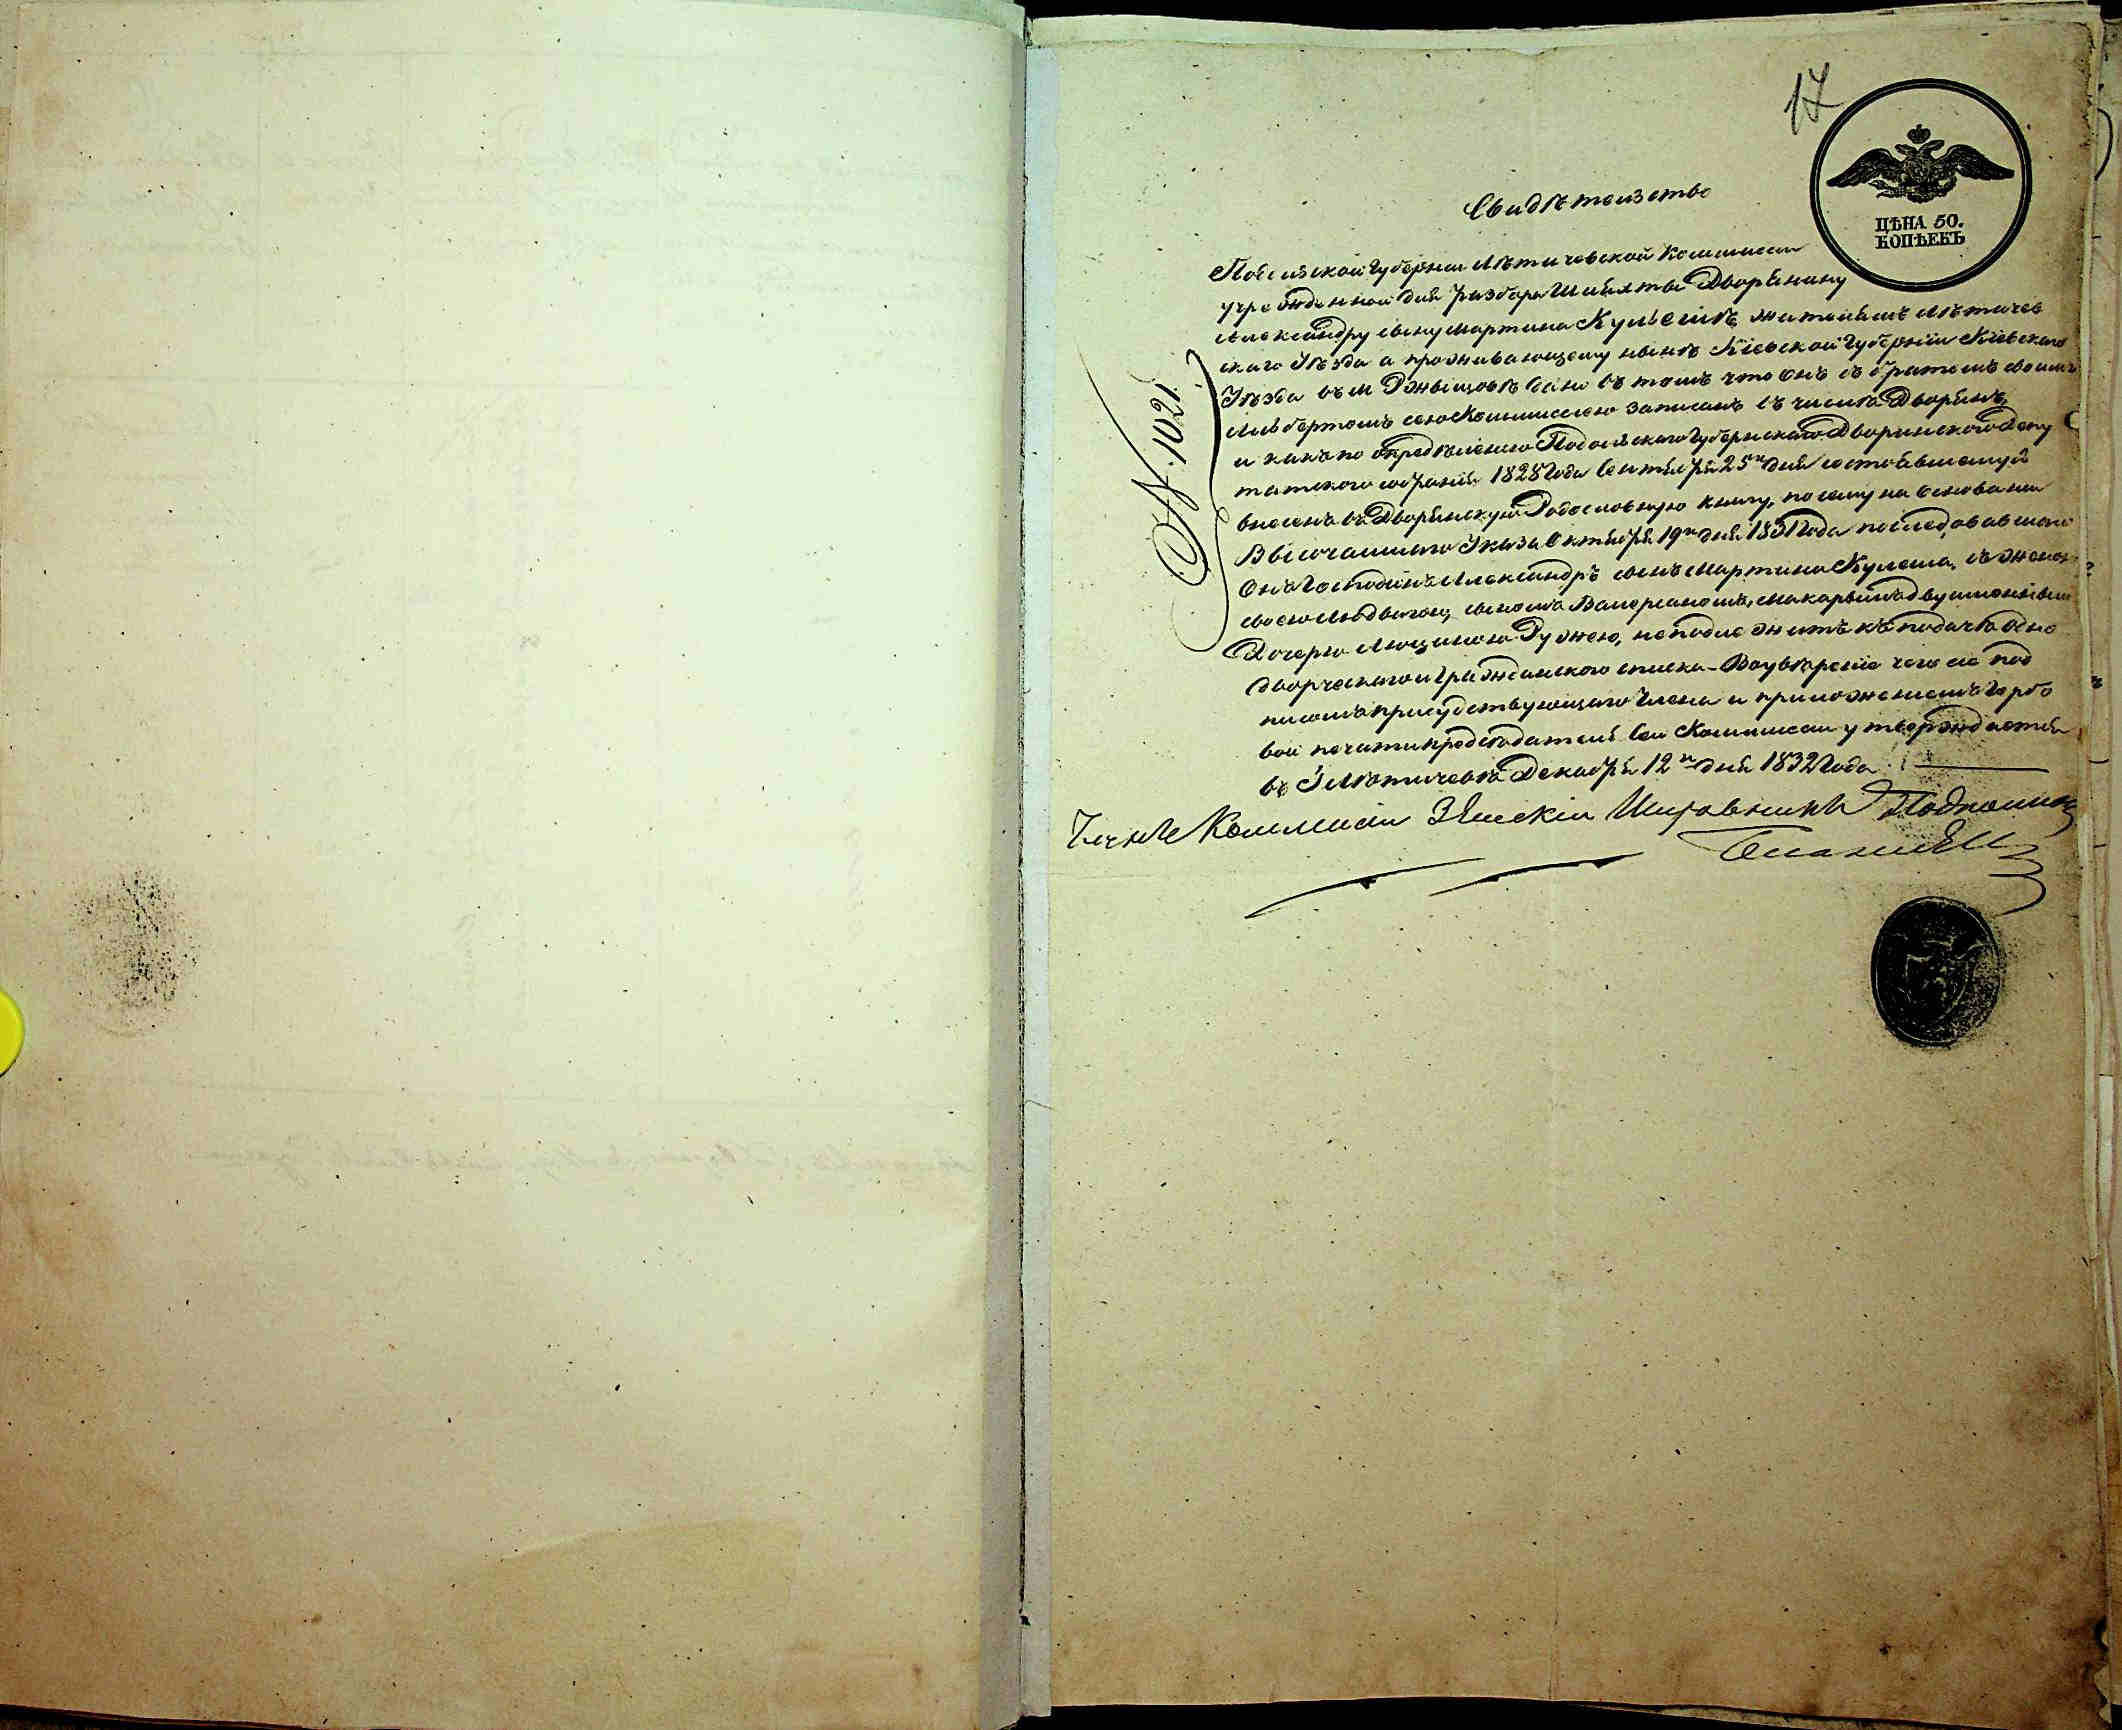 17
ЦѢНА 50.
КОПѢЕКЪ
Свидѣтельство
№ 1021.
Подольской Губернии Лѣтичевской Коммиссии
учрежденной для разбора Шляхты Дворянину
Александру сыну Мартина Кулешѣ, жителемъ Лѣтичев
скаго Уѣзда а проживающему нынѣ Кіевской Губерніи Кіевскаго
Уѣзда въ м Ржыщовѣ дано въ томъ что онъ съ братомъ своимъ
Албертомъ сею Коммиссіею записанъ въ числѣ Дворянъ,
и какъ по опредѣленію Подольскаго Губернскаго Дворянского Депу
татского собранія 1828 Года Сентября 25го дня состоявшемуся
внесенъ въ Дворянскую Родословную книгу, по сему на основании
Высочайшаго Указа Октября 19го дня 1831 Года последовавшаго
Онъ Господинъ Александръ сынъ Мартина Кулеша, съ женою
своею Людвигою, сыномъ Валеріаномъ, Макарымъ двуименнымъ
Дочерю Люциною Ружею, неподлежитъ къ подачѣ одно
дворческаго и Гражданского списка – Воувѣреніе чего сіе под
писомъ присудствующаго Члена и приложеніемъ Гербо
вой печати предсѣдателя Сей Коммиссии утверждается
въ Г Лѣтичевѣ Декабря 12го дня 1832 Года
Членъ Коммисіи Земскіи Исправникъ